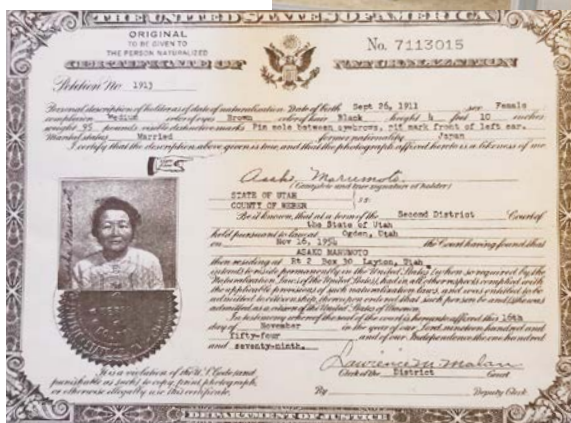 THE UNITED STATES OF AMERICA
ORIGINAL
TO BE GIVEN TO
THE PERSON NATURALIZED
No. 7113015
CERTIFICATE OF NATURALIZATION
Petition No 1913
Personal description of holder as of date of naturalization: Date of birth Sept 26, 1911 sex Female
complexion Medium color of eyes Brown color of hair Black height 4 feet 10 inches
weight 95 pounds visible distinctive marks Pin mole between eyebrows, pit mark front of left ear.
Marital status Married former nationality Japan
I certify that the description above given is true, and that the photograph affixed hereto is a likeness of me
Asako Marumoto
(Complete and true signature of holder)
STATE OF UTAH
COUNTY OF WEBER
Be it known, that at a term of the Second District Court of
the State of Utah
held pursuant to law at Ogden, Utah
on Nov 16, 1954 the Court having found that
ASAKO MARUMOTO
then residing at Rt 2 Box 30 Layton, Utah
intends to reside permanently in the United States (when so required by the
Naturalization Laws of the United States), had in all other respects complied with
the applicable provisions of such naturalization laws, and was entitled to be
admitted to citizenship, thereupon ordered that such person be and (s)he was
admitted as a citizen of the United States of America.
In testimony whereof the seal of the court is hereunto affixed this 16th
day of November in the year of our Lord nineteen hundred and
fifty-four and of our Independence the one hundred
and seventy-ninth.
Lawrence M. Malan
Clerk of the District Court
By Deputy Clerk
It is a violation of the U.S. Code (and
punishable as such) to copy, print, photograph,
or otherwise illegally use this certificate.
DEPARTMENT OF JUSTICE